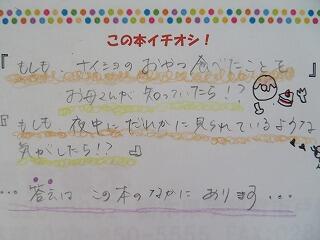 この本イチオシ！
『もしも、ナイショのおやつ食べたことを
お母さんが知っていたら!?
『もしも夜中にだれかに見られているような
気がしたら!?』
…答えはこの本のなかにあります…